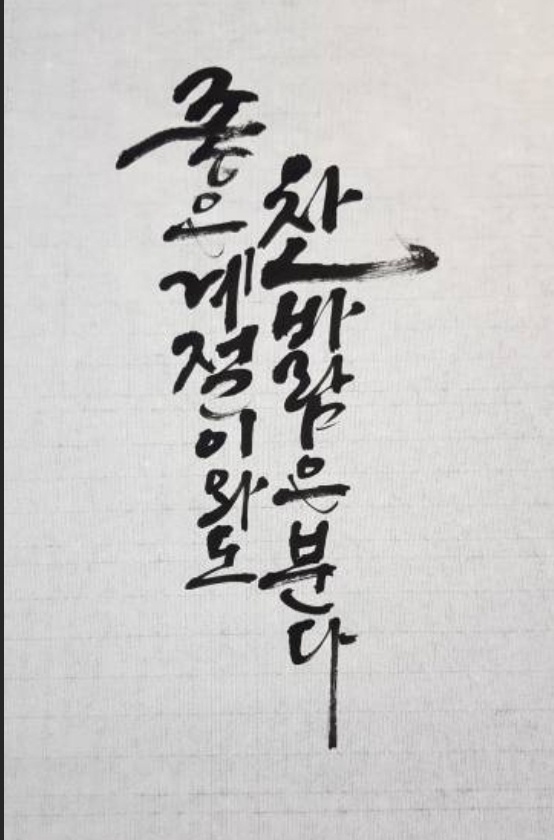 좋은 계절이 와도
찬 바람은 분다